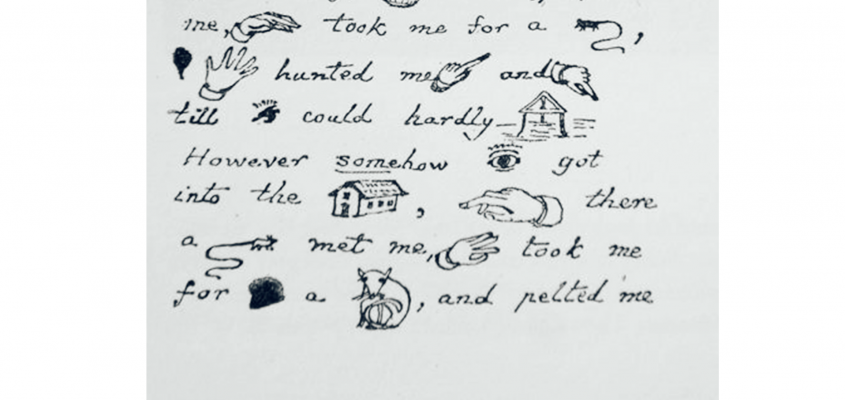 me, took me for a ,
hunted me and
till could hardly
However somehow got
into the , there
a met me, took me
for a , and pelted me